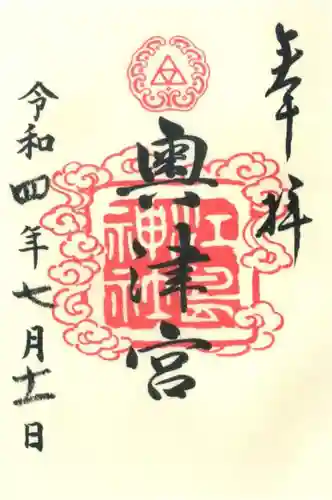 奉拝
奥津宮
江島神社
令和四年七月十一日